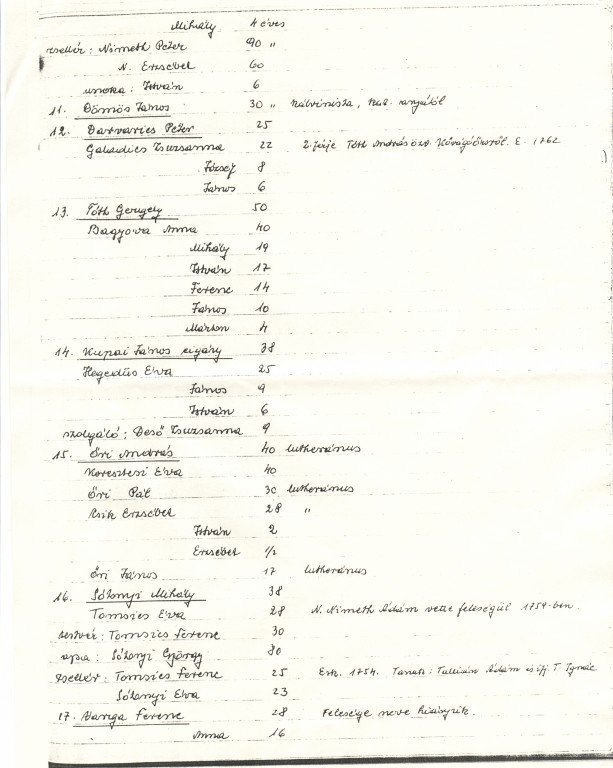 Mihály 4 éves
zsellér: Németh Péter 90 "
N. Erzsébet 60
unoka: István 6
11. Dömös János 30 " kálvinista, kat. anyától
12. Darvarics Péter 25
Gabadics Zsuzsanna 22 2. férje Tóth András özv. Kővágóőrsről. E. 1762
József 8
János 6
13. Tóth Gergely 50
Bagyova Anna 40
Mihály 19
István 17
Ferenc 14
János 10
Márton 4
14. Kupai János cigány 38
Hegedűs Éva 25
János 9
István 6
szolgáló: Deső Zsuzsanna 9
15. Őri András 40 lutheránus
Keresztesi Éva 40
Őri Pál 30 lutheránus
Csik Erzsébet 28 "
István 2
Erzsébet 1/2
Őri János 17 lutheránus
16. Sólyonyi Mihály 38
Tomsics Éva 28 N. Németh Ádám vette feleségül 1759-ben.
testvér: Tomsics Ferenc 30
apja: György 80
zsellér: Tomsics Ferenc 25 Esk. 1754. Tanuk: Tallián Ádám és ifj. T. Ignác
Éva 23
17. Varga Ferenc 28 Felesége neve hiányzik.
Anna 16